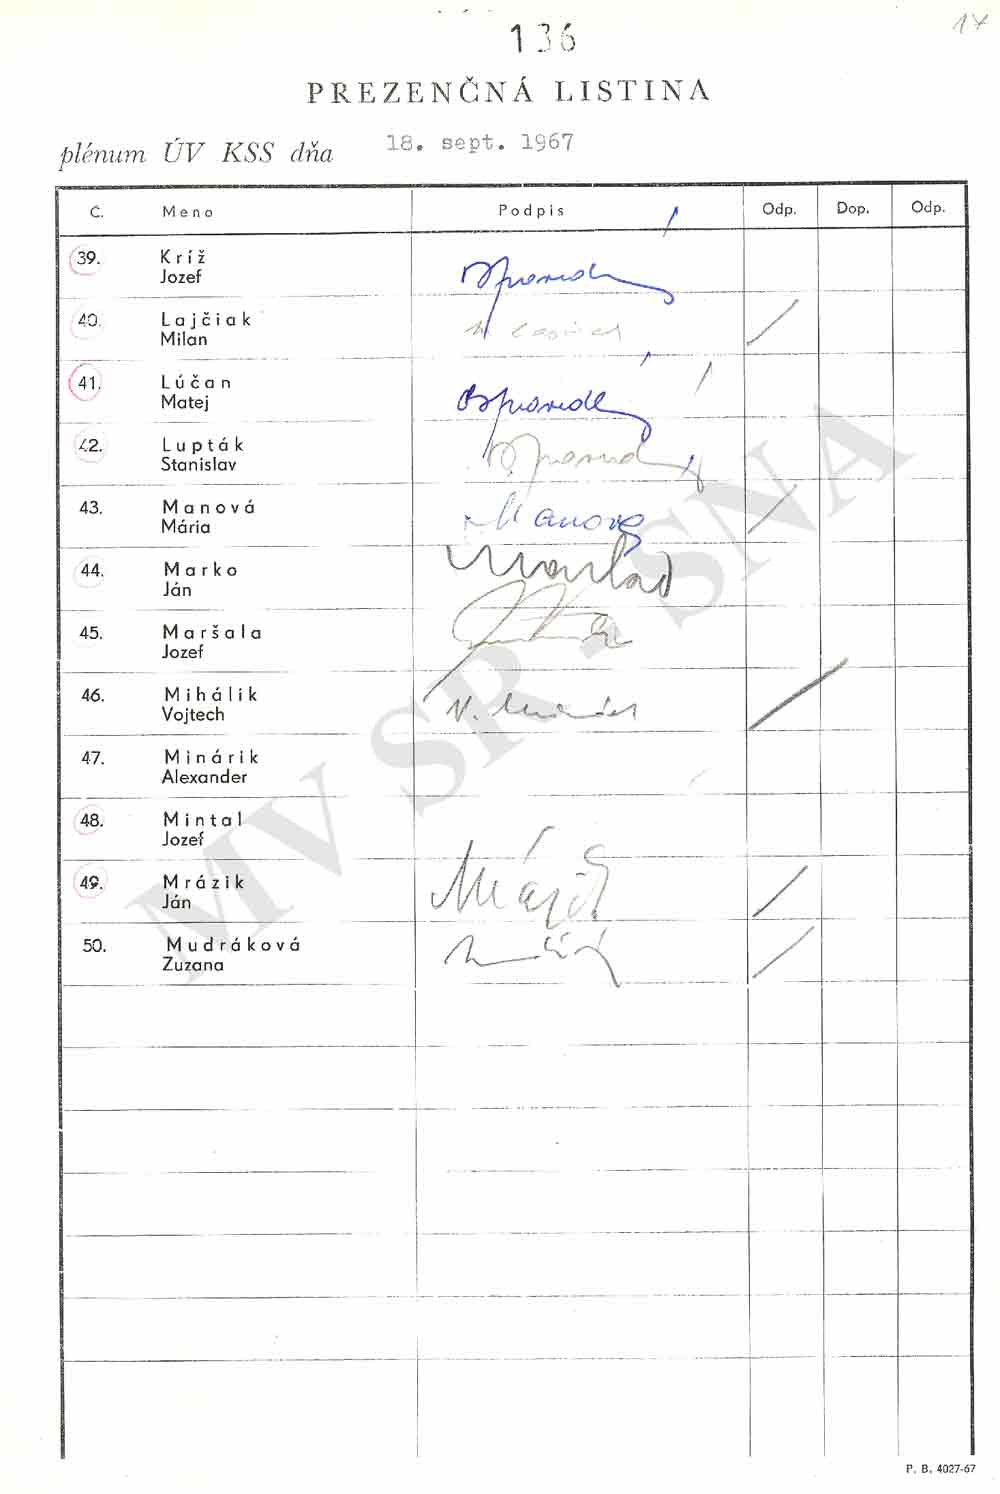 136
17
PREZENČNÁ LISTINA
plénum ÚV KSS dňa 18. sept. 1967
Č. Meno Podpis Odp. Dop. Odp.
39. Kríž
Jozef
40. Lajčiak
Milan
41. Lúčan
Matej
42. Lupták
Stanislav
43. Manová Manová
Mária
44. Marko
Ján
45. Maršala
Jozef
46. Mihálik
Vojtech
47. Minárik
Alexander
48. Mintal
Jozef
49. Mrázik
Ján
50. Mudráková
Zuzana
MV SR - SNA
P. B. 4027-67